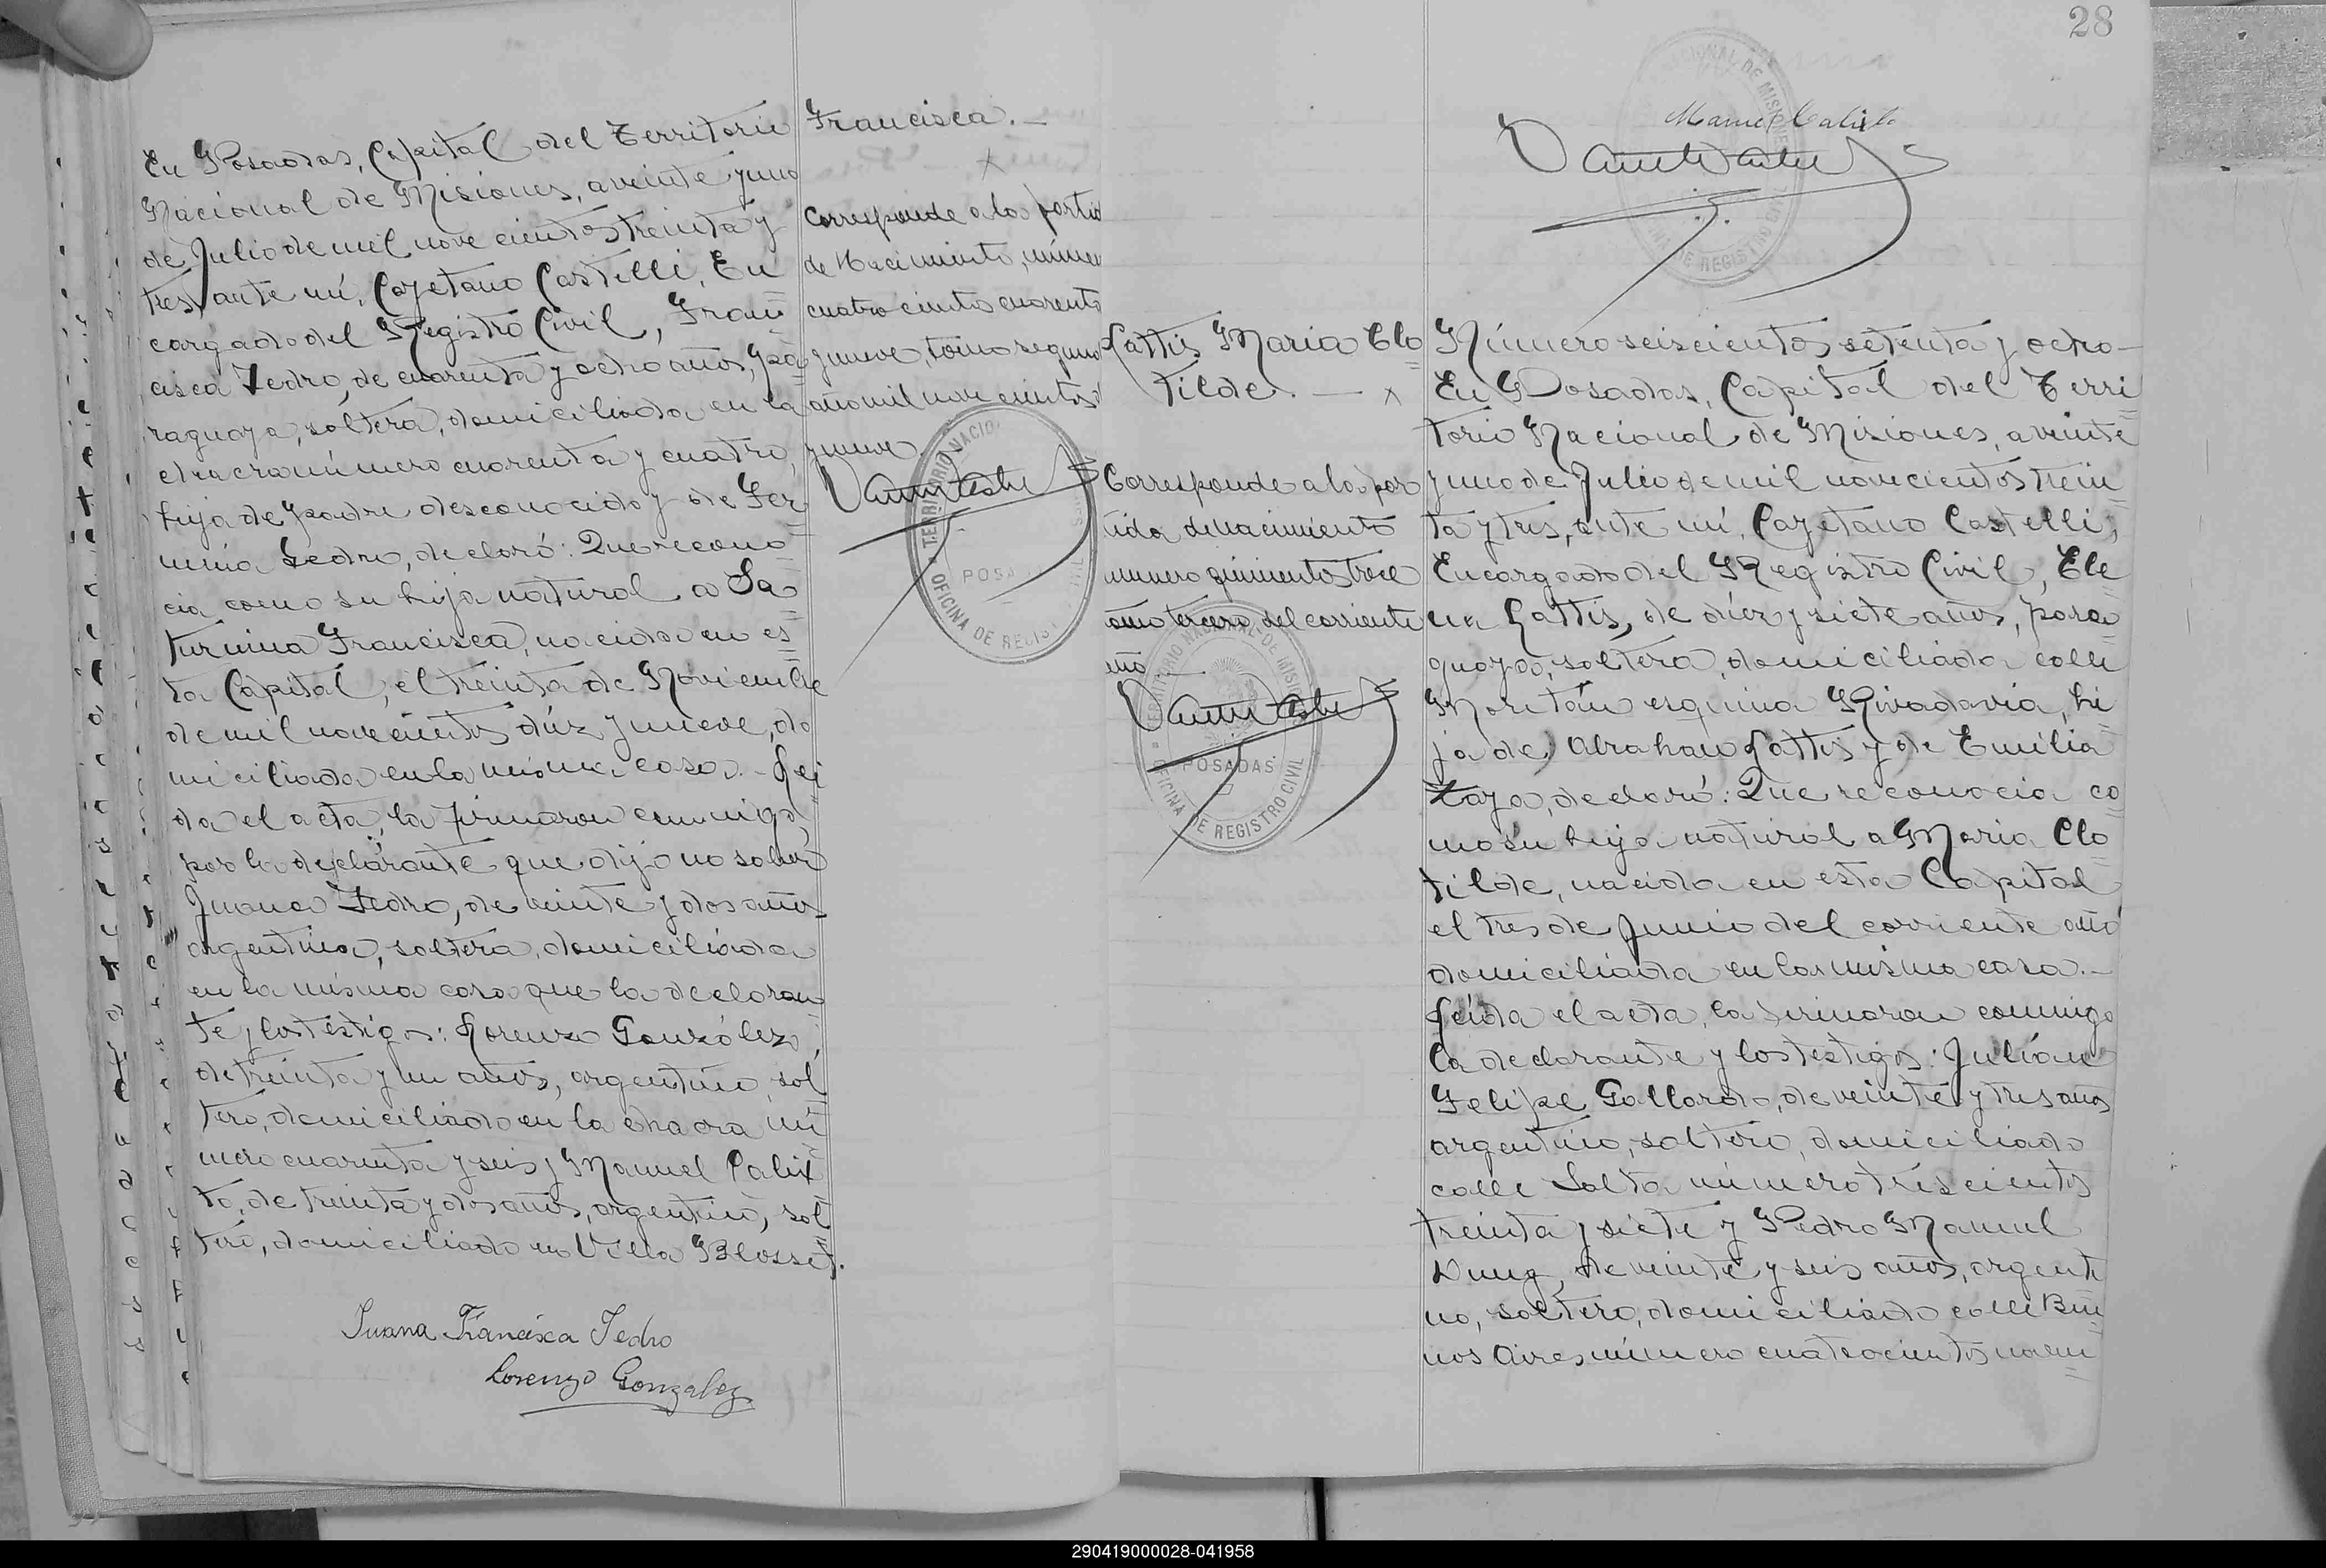 En Posadas, Capital del Territorio
Nacional de Misiones, a veinte y uno
de Julio de mil novecientos treinta y
tres, ante mí, Cayetano Castelli, En
cargado del Registro Civil, Fran
cisca Fedro, de cuarenta y ocho años, pa
raguaya, soltera, domiciliada en la
chacra número cuarenta y cuatro,
hija de padre desconocido y de Fer
mina Fedro, declaró: Que recono
cia como su hija natural a Sa
turnina Francisca, nacida en es
ta Capital, el treinta de Noviembre
de mil novecientos diez y nueve, do
miciliada en la misma casa.- Lei
da el acta, la firmaron conmigo,
por la declarante que dijo no saber
Juana Fedro, de veinte y dos años
argentina, soltera, domiciliada
en la misma casa que la declaran
te y los testigos: Lorenzo González,
de treinta y un años, argentino, sol
tero, domiciliado en la chacra nú
mero cuarenta y seis y Manuel Calix
to, de treinta y dos años, argentino, sol
tero, domiciliado en Villa Blosset.
Juana Francisca Fedro
Lorenzo Gonzalez
Francisca.-
x
Corresponde a la partid
de Nacimiento, númer
cuatrocientos cuarenta
y nueve, tomo segund
año mil novecientos
y nueve.
TERRITORIO NACIO
POSA
OFICINA DE REGIS
28
NACIONAL DE MISI
DE REGISTRO CIVIL
Manuel Calixto
Lattis Maria Clo
tilde. — x
Corresponde a la par
tida de nacimiento
numero quinientos trece
tomo tercero del corriente
año
TERRITORIO NACIONAL DE MISIONES
POSADAS
OFICINA DE REGISTRO CIVIL
Número seiscientos setenta y ocho-
En Posadas, Capital del Terri
torio Nacional de Misiones, a veinte
y uno de Julio de mil novecientos trein
ta y tres, ante mí, Cayetano Castelli,
Encargado del Registro Civil, Ele
na Lattis, de diez y siete años, para
guaya, soltera, domiciliada calle
esquina Rivadavia, hi
ja de Abraham Lattis y de Emilia
declaró: Que reconocia co
mo su hija natural a Maria Clo
tilde, nacida en esta Capital
el tres de Junio del corriente año
domiciliada en la misma casa.-
Leida el acta, la firmaron conmigo
la declarante y los testigos: Julián
Felipe Gallardo, de veinte y tres años
argentino, soltero, domiciliado
calle Salta número trescientos
treinta y siete y Pedro Manuel
de veinte y seis años, argenti
no, soltero, domiciliado calle Bue
nos Aires número cuatrocientos noven
290419000028-041958